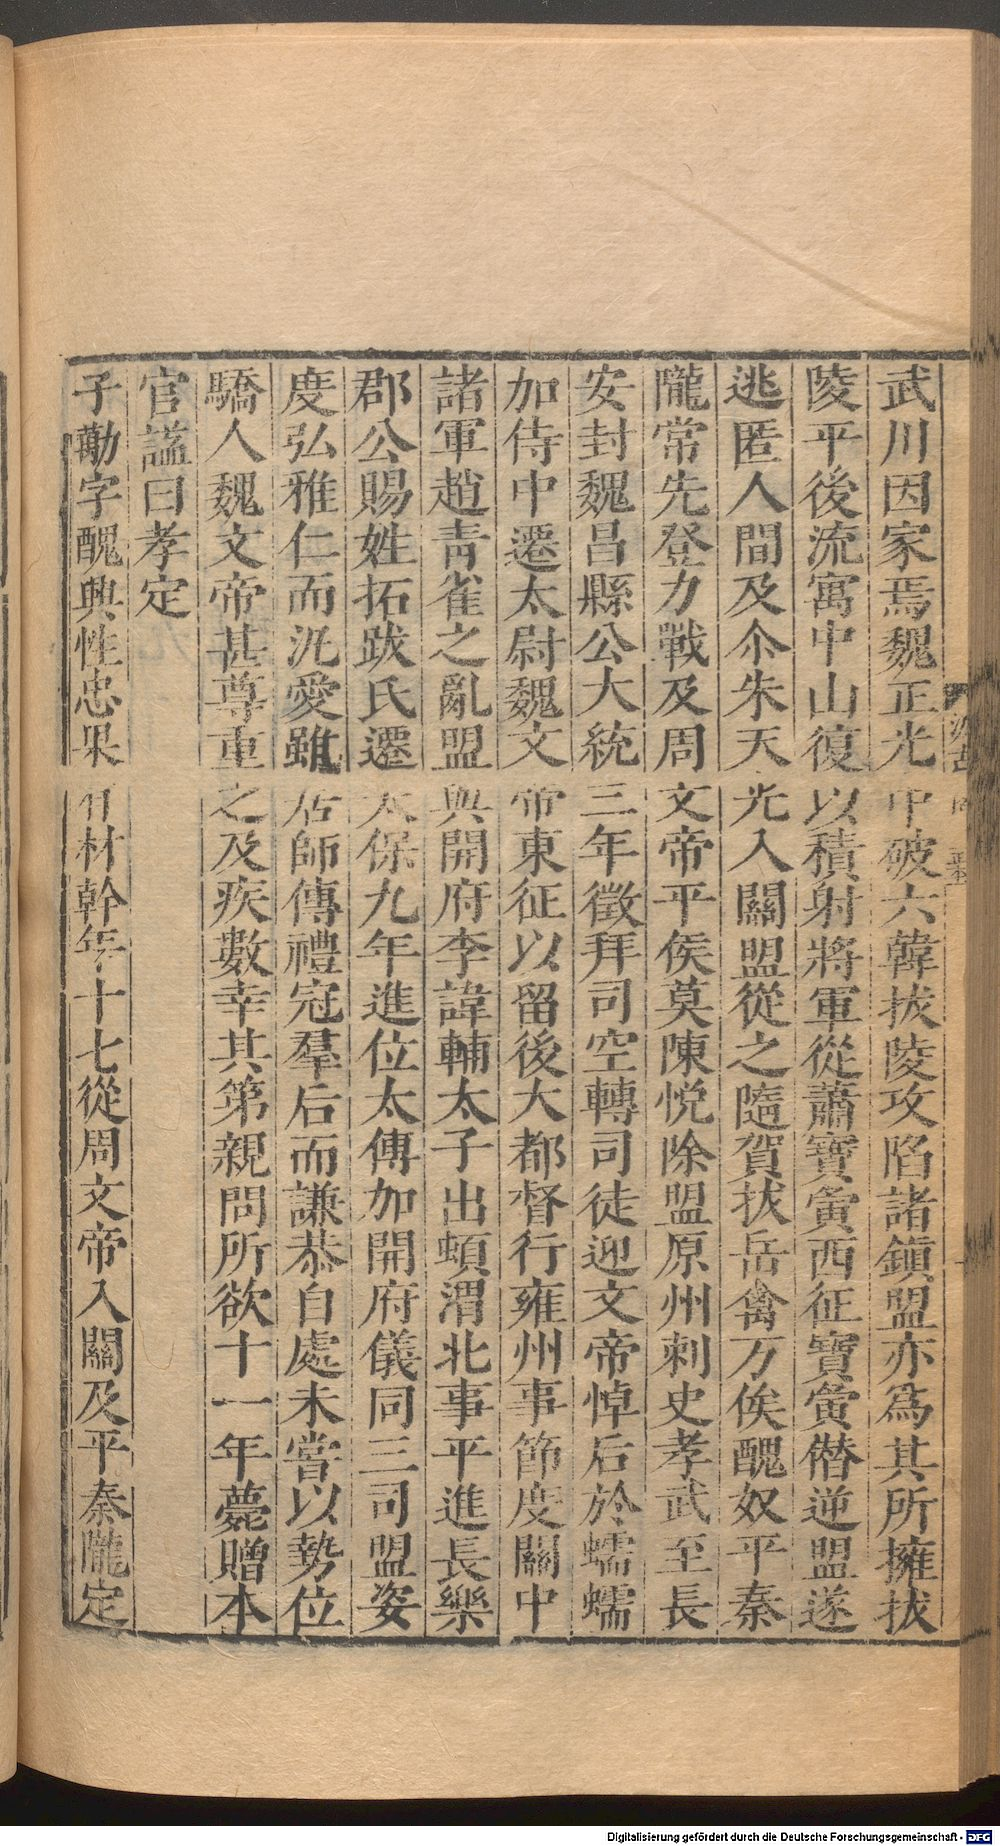 武川因家焉魏正光中破六韓拔陵攻陷諸鎮盟亦爲其所擁拔
陵平後流寓中山復以積射將軍從蕭寶夤西征寶夤僭逆盟遂
逃匿人間及尒朱天光入關盟從之隨賀拔岳禽万俟醜奴平秦
隴常先登力戰及周文帝平侯莫陳悅除盟原州刺史孝武至長
安封魏昌縣公大統三年徵拜司空轉司徒迎文帝悼后於蠕蠕
加侍中遷太尉魏文帝東征以留後大都督行雍州事節度關中
諸軍趙青雀之亂盟與開府李諱輔太子出頓渭北事平進長樂
郡公賜姓拓跋氏遷太保九年進位太傅加開府儀同三司盟姿
度弘雅仁而汎愛雖居師傅禮冠羣后而謙恭自處未嘗以勢位
驕人魏文帝甚尊重之及疾數幸其第親問所欲十一年薨贈本
官謚曰孝定
子勱字醜興性忠果有材幹年十七從周文帝入關及平秦隴定
Digitalisierung gefördert durch die Deutsche Forschungsgemeinschaft - DFG